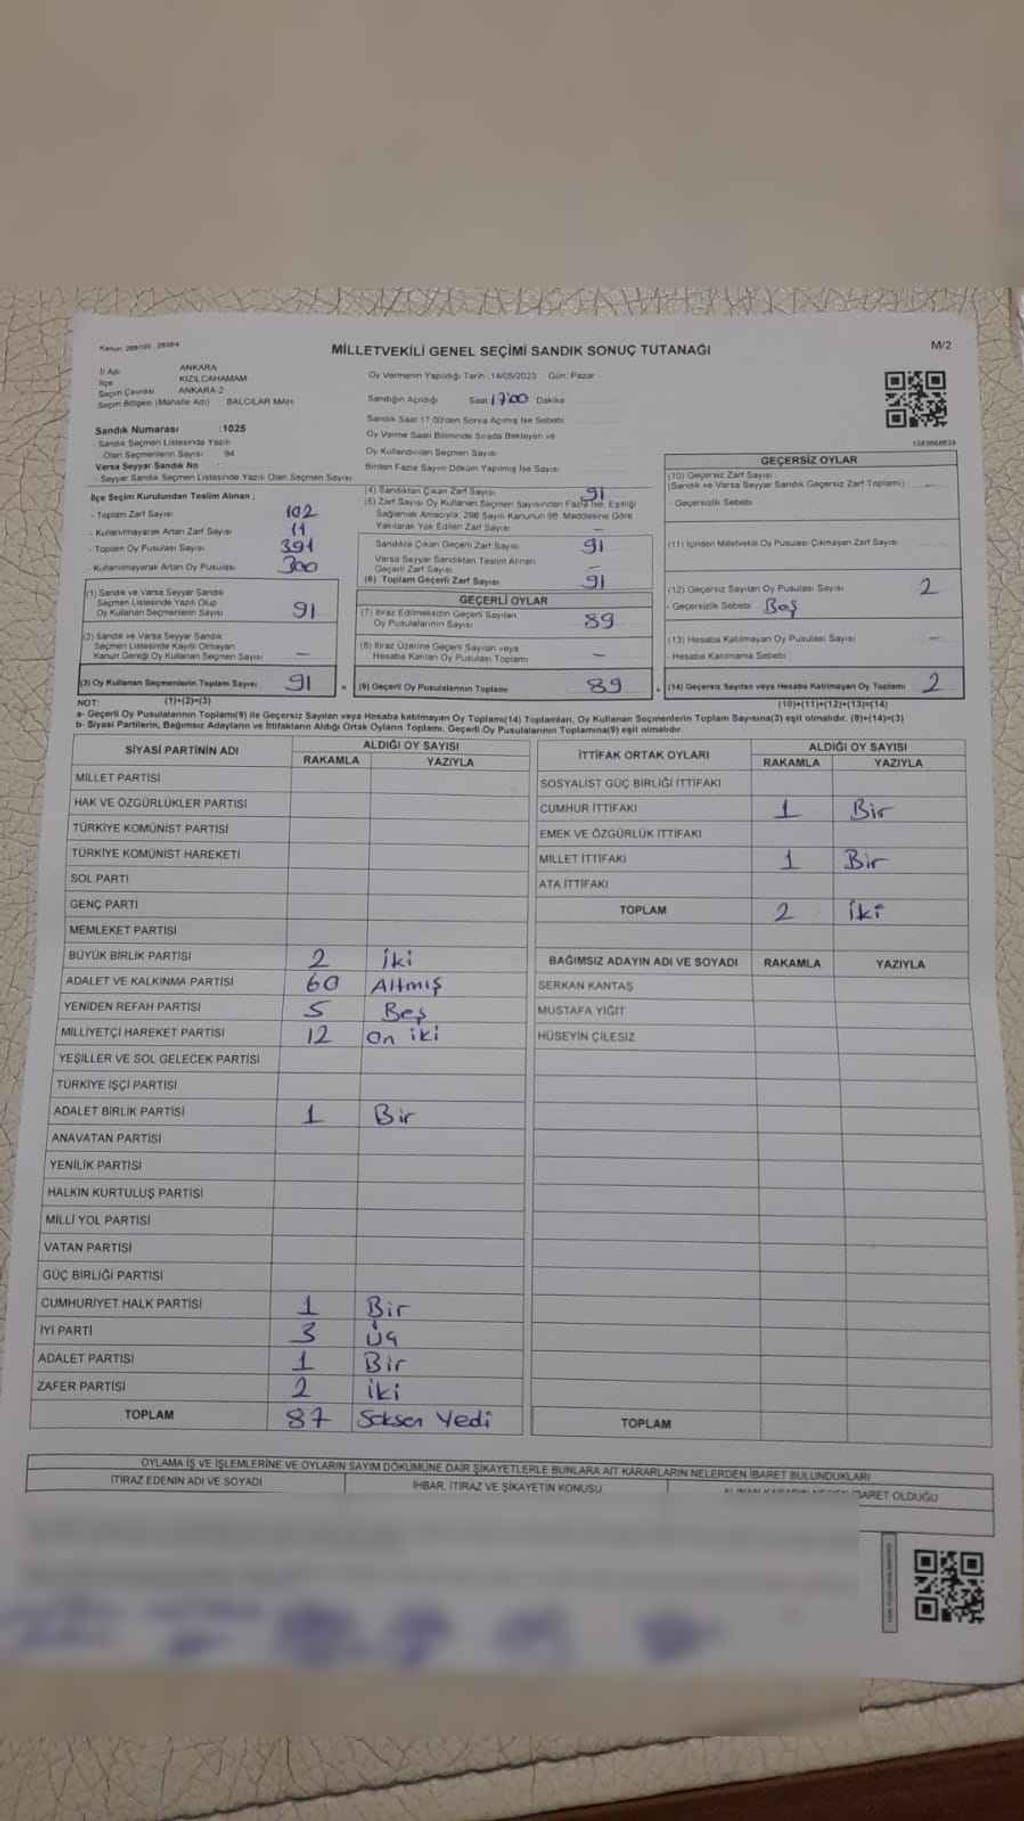 MİLLETVEKİLİ GENEL SEÇİMİ SANDIK SONUÇ TUTANAĞI
M/2
İl Adı ANKARA
İlçe KIZILCAHAMAM
Seçim Çevresi ANKARA 2
Seçim Bölgesi (Mahalle Adı) BALCILAR MAH.
Sandık Numarası :1025
Sandık Seçmen Listesinde Yazılı
Olan Seçmenlerin Sayısı 94
Varsa Seyyar Sandık No
Seyyar Sandık Seçmen Listesinde Yazılı Olan Seçmen Sayısı
Oy Vermenin Yapıldığı Tarih :14/05/2023 Gün: Pazar
Sandığın Açıldığı Saat 17:00 Dakika
Sandık Saat 17:00'den Sonra Açılmış İse Sebebi
Oy Verme Saati Bitiminde Sırada Bekleyen ve
Oy Kullandırılan Seçmen Sayısı
Birden Fazla Sayım Döküm Yapılmış İse Sayısı
İlçe Seçim Kurulundan Teslim Alınan ;
- Toplam Zarf Sayısı 102
- Kullanılmayarak Artan Zarf Sayısı 11
- Toplam Oy Pusulası Sayısı 391
- Kullanılmayarak Artan Oy Pusulası 300
(1) Sandık ve Varsa Seyyar Sandık
Seçmen Listesinde Yazılı Olup
Oy Kullanan Seçmenlerin Sayısı 91
(2) Sandık ve Varsa Seyyar Sandık
Seçmen Listesinde Kayıtlı Olmayan
Kanun Gereği Oy Kullanan Seçmen Sayısı —
(3) Oy Kullanan Seçmenlerin Toplam Sayısı 91
(1)+(2)=(3)
(4) Sandıktan Çıkan Zarf Sayısı 91
(5) Zarf Sayısı Oy Kullanan Seçmen Sayısından Fazla İse, Eşitliği
Sağlamak Amacıyla, 298 Sayılı Kanunun 98. Maddesine Göre
Yakılarak Yok Edilen Zarf Sayısı —
Sandıkta Çıkan Geçerli Zarf Sayısı 91
Varsa Seyyar Sandıktan Teslim Alınan
Geçerli Zarf Sayısı —
(6) Toplam Geçerli Zarf Sayısı 91
GEÇERLİ OYLAR
(7) İtiraz Edilmeksizin Geçerli Sayılan
Oy Pusulalarının Sayısı 89
(8) İtiraz Üzerine Geçerli Sayılan veya
Hesaba Katılan Oy Pusulası Toplamı —
= (9) Geçerli Oy Pusulalarının Toplamı 89
GEÇERSİZ OYLAR
(10) Geçersiz Zarf Sayısı
(Sandık ve Varsa Seyyar Sandık Geçersiz Zarf Toplamı)
Geçersizlik Sebebi
(11) İçinden Milletvekili Oy Pusulası Çıkmayan Zarf Sayısı
(12) Geçersiz Sayılan Oy Pusulası Sayısı 2
- Geçersizlik Sebebi Boş
(13) Hesaba Katılmayan Oy Pusulası Sayısı —
- Hesaba Katılmama Sebebi
+ (14) Geçersiz Sayılan veya Hesaba Katılmayan Oy Toplamı 2
(10)+(11)+(12)+(13)=(14)
NOT:
a- Geçerli Oy Pusulalarının Toplamı(9) ile Geçersiz Sayılan veya Hesaba katılmayan Oy Toplamı(14) Toplamları, Oy Kullanan Seçmenlerin Toplam Sayısına(3) eşit olmalıdır. (9)+(14)=(3)
b- Siyasi Partilerin, Bağımsız Adayların ve İttifakların Aldığı Ortak Oyların Toplamı, Geçerli Oy Pusulalarının Toplamına(9) eşit olmalıdır.
SİYASİ PARTİNİN ADI ALDIĞI OY SAYISI
RAKAMLA YAZIYLA
MİLLET PARTİSİ
HAK VE ÖZGÜRLÜKLER PARTİSİ
TÜRKİYE KOMÜNİST PARTİSİ
TÜRKİYE KOMÜNİST HAREKETİ
SOL PARTİ
GENÇ PARTİ
MEMLEKET PARTİSİ
BÜYÜK BİRLİK PARTİSİ 2 iki
ADALET VE KALKINMA PARTİSİ 60 Altmış
YENİDEN REFAH PARTİSİ 5 Beş
MİLLİYETÇİ HAREKET PARTİSİ 12 On iki
YEŞİLLER VE SOL GELECEK PARTİSİ
TÜRKİYE İŞÇİ PARTİSİ
ADALET BİRLİK PARTİSİ 1 Bir
ANAVATAN PARTİSİ
YENİLİK PARTİSİ
HALKIN KURTULUŞ PARTİSİ
MİLLİ YOL PARTİSİ
VATAN PARTİSİ
GÜÇ BİRLİĞİ PARTİSİ
CUMHURİYET HALK PARTİSİ 1 Bir
İYİ PARTİ 3 üç
ADALET PARTİSİ 1 Bir
ZAFER PARTİSİ 2 iki
TOPLAM 87 Seksen Yedi
İTTİFAK ORTAK OYLARI ALDIĞI OY SAYISI
RAKAMLA YAZIYLA
SOSYALİST GÜÇ BİRLİĞİ İTTİFAKI
CUMHUR İTTİFAKI 1 Bir
EMEK VE ÖZGÜRLÜK İTTİFAKI
MİLLET İTTİFAKI 1 Bir
ATA İTTİFAKI
TOPLAM 2 iki
BAĞIMSIZ ADAYIN ADI VE SOYADI RAKAMLA YAZIYLA
SERKAN KANTAŞ
MUSTAFA YİĞİT
HÜSEYİN ÇİLESİZ
TOPLAM
OYLAMA İŞ VE İŞLEMLERİNE VE OYLARIN SAYIM DÖKÜMÜNE DAİR ŞİKAYETLERLE BUNLARA AİT KARARLARIN NELERDEN İBARET BULUNDUKLARI
İTİRAZ EDENİN ADI VE SOYADI
İHBAR, İTİRAZ VE ŞİKAYETİN KONUSU
İBARET OLDUĞU